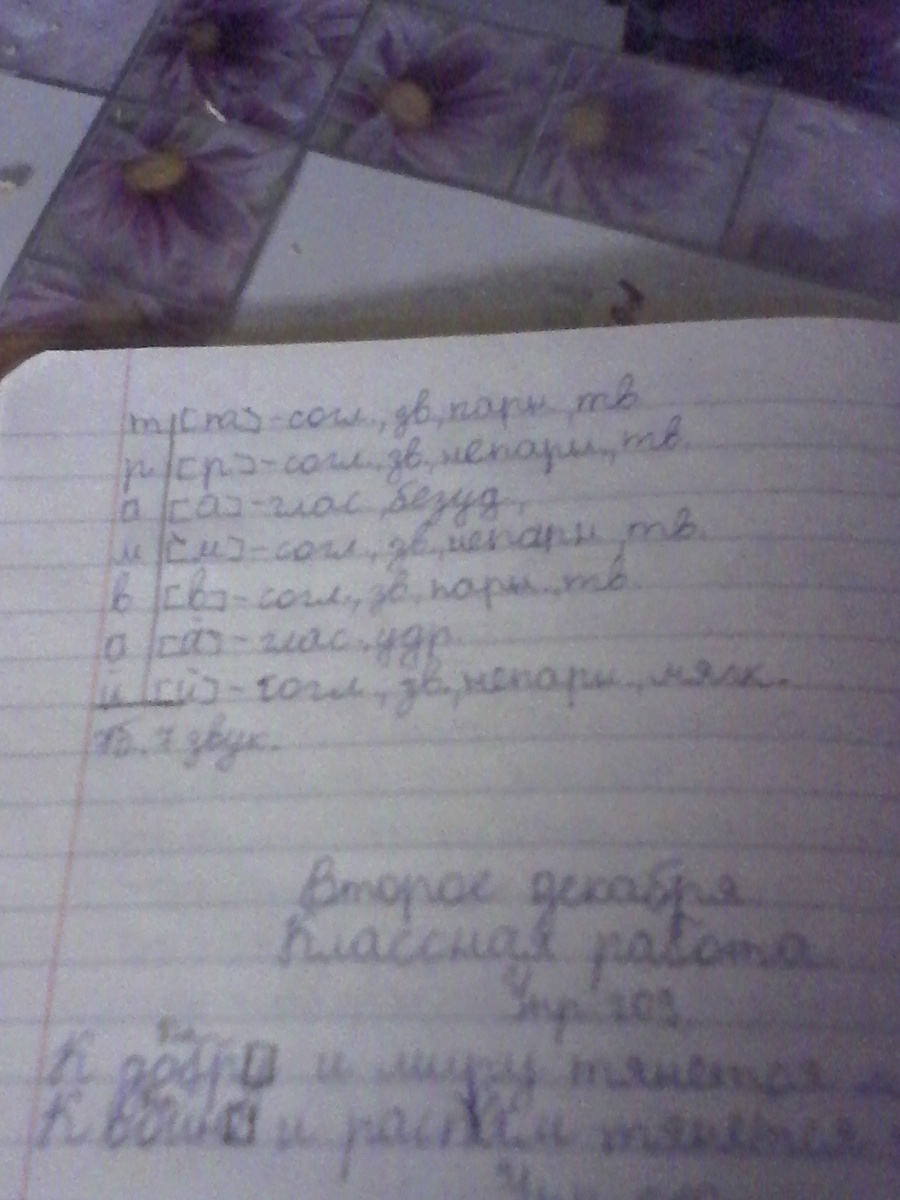 т [т] - согл., зв, парн, тв
р [р] - согл, зв., непарн., тв.
а [а] - глас, безуд.,
м [м] - согл., зв., непарн, тв.
в [в] - согл., зв, парн., тв.
а [а] - глас. удр.
й [й] - согл., зв., непарн., мягк.
7 звук.
Второе декабря
Классная работа
Упр 203
К добру и миру тянется
К и тянется